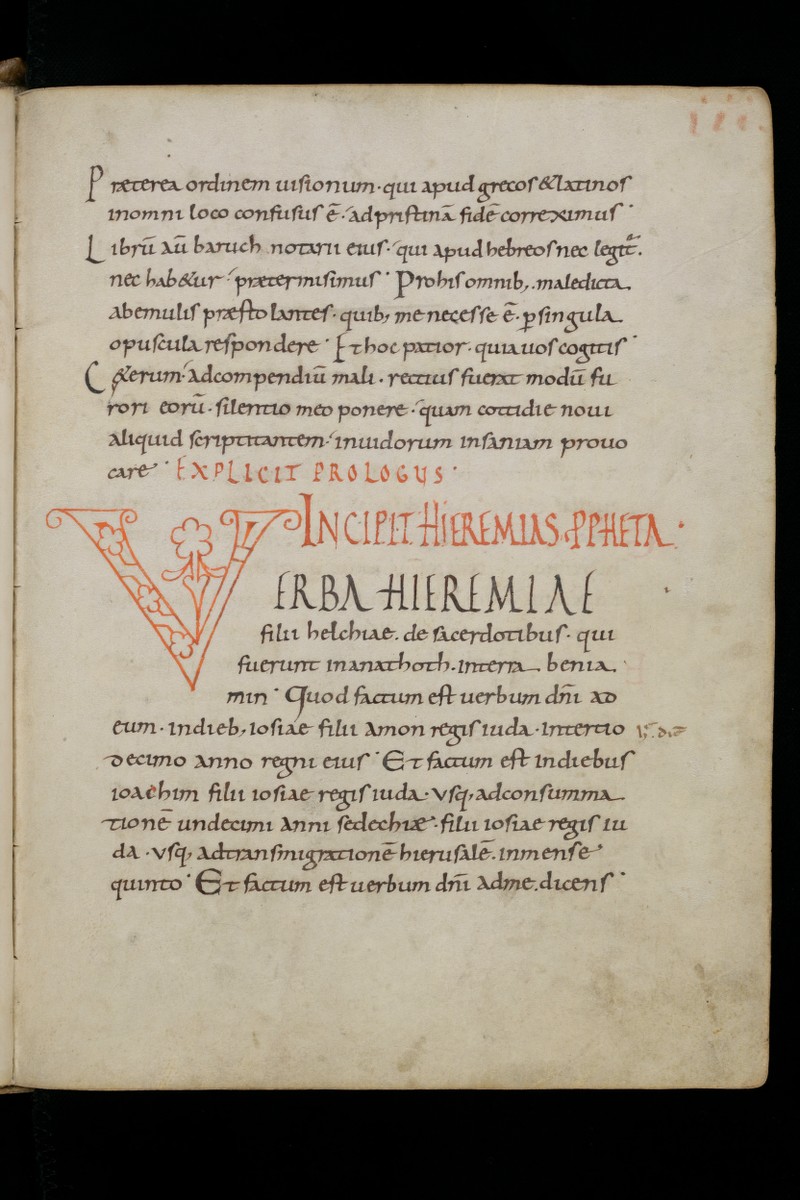 III.
Preterea ordinem uisionum· qui apud grecos & latinos
in omni loco confusus ē· ad pristinā fidē correximus·
Librū aū baruch notarii eius· qui apud hebreos nec legit̄.
nec hab&ur· prætermisimus· Pro his omnib; maledicta
ab emulis præstolantes· quib; me necesse ē· ꝑ singula
opuscula respondere· Et hoc patior· quia uos cogitis·
C&erum· ad compendiū mali· rectius fuerat modū fu
rori eorū· silentio meo ponere· quam cottidie noui
aliquid scriptitantem· inuidorum insaniam prouo
care· EXPLICIT PROLOGUS·
INCIPIT HIEREMIAS PPHETA·
VERBA HIEREMIAE
filii helchiae. de sacerdotibus· qui
fuerunt in anathoth. in terra benia
min· Quod factum est uerbum dn̄i ad
eum· in dieb; iosiae filii amon regis iuda· in tertio
decimo anno regni eius· Et factum est in diebus
ioachim filii iosiae regis iuda· vsq; ad consumma
tionē undecimi anni sedechiæ· filii iosiae regis iu
da· vsq; ad transmigrationē hierusalē. in mense
quinto· Et factum est uerbum dn̄i ad me. dicens·